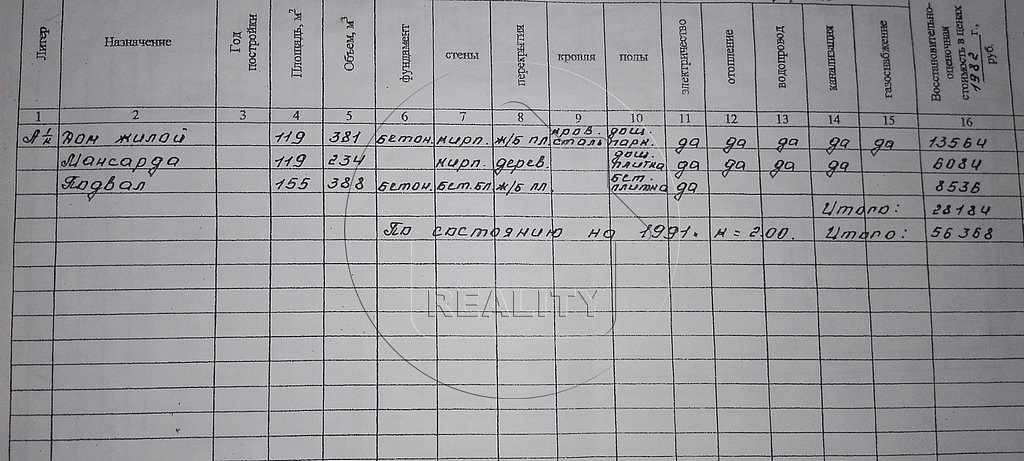 Литер Назначение Год постройки Площадь, м² Объем, м³ фундамент стены перекрытия кровля полы электричество отопление водопровод канализация газоснабжение Восстановительно-оценочная стоимость в ценах 1982 г., руб.
1 2 3 4 5 6 7 8 9 10 11 12 13 14 15 16
кров. дощ.
Дом жилой 119 381 бетон. кирп. ж/б пл. сталь парк. да да да да да 13564
дощ.
Мансарда 119 234 кирп. дерев. плитка да да да да 6084
бет.
Подвал 155 388 бетон. бет.бл. ж/б пл плитка да 8536
Итого: 28184
По состоянию на 1991. к = 2.00. Итого: 56368
REALITY